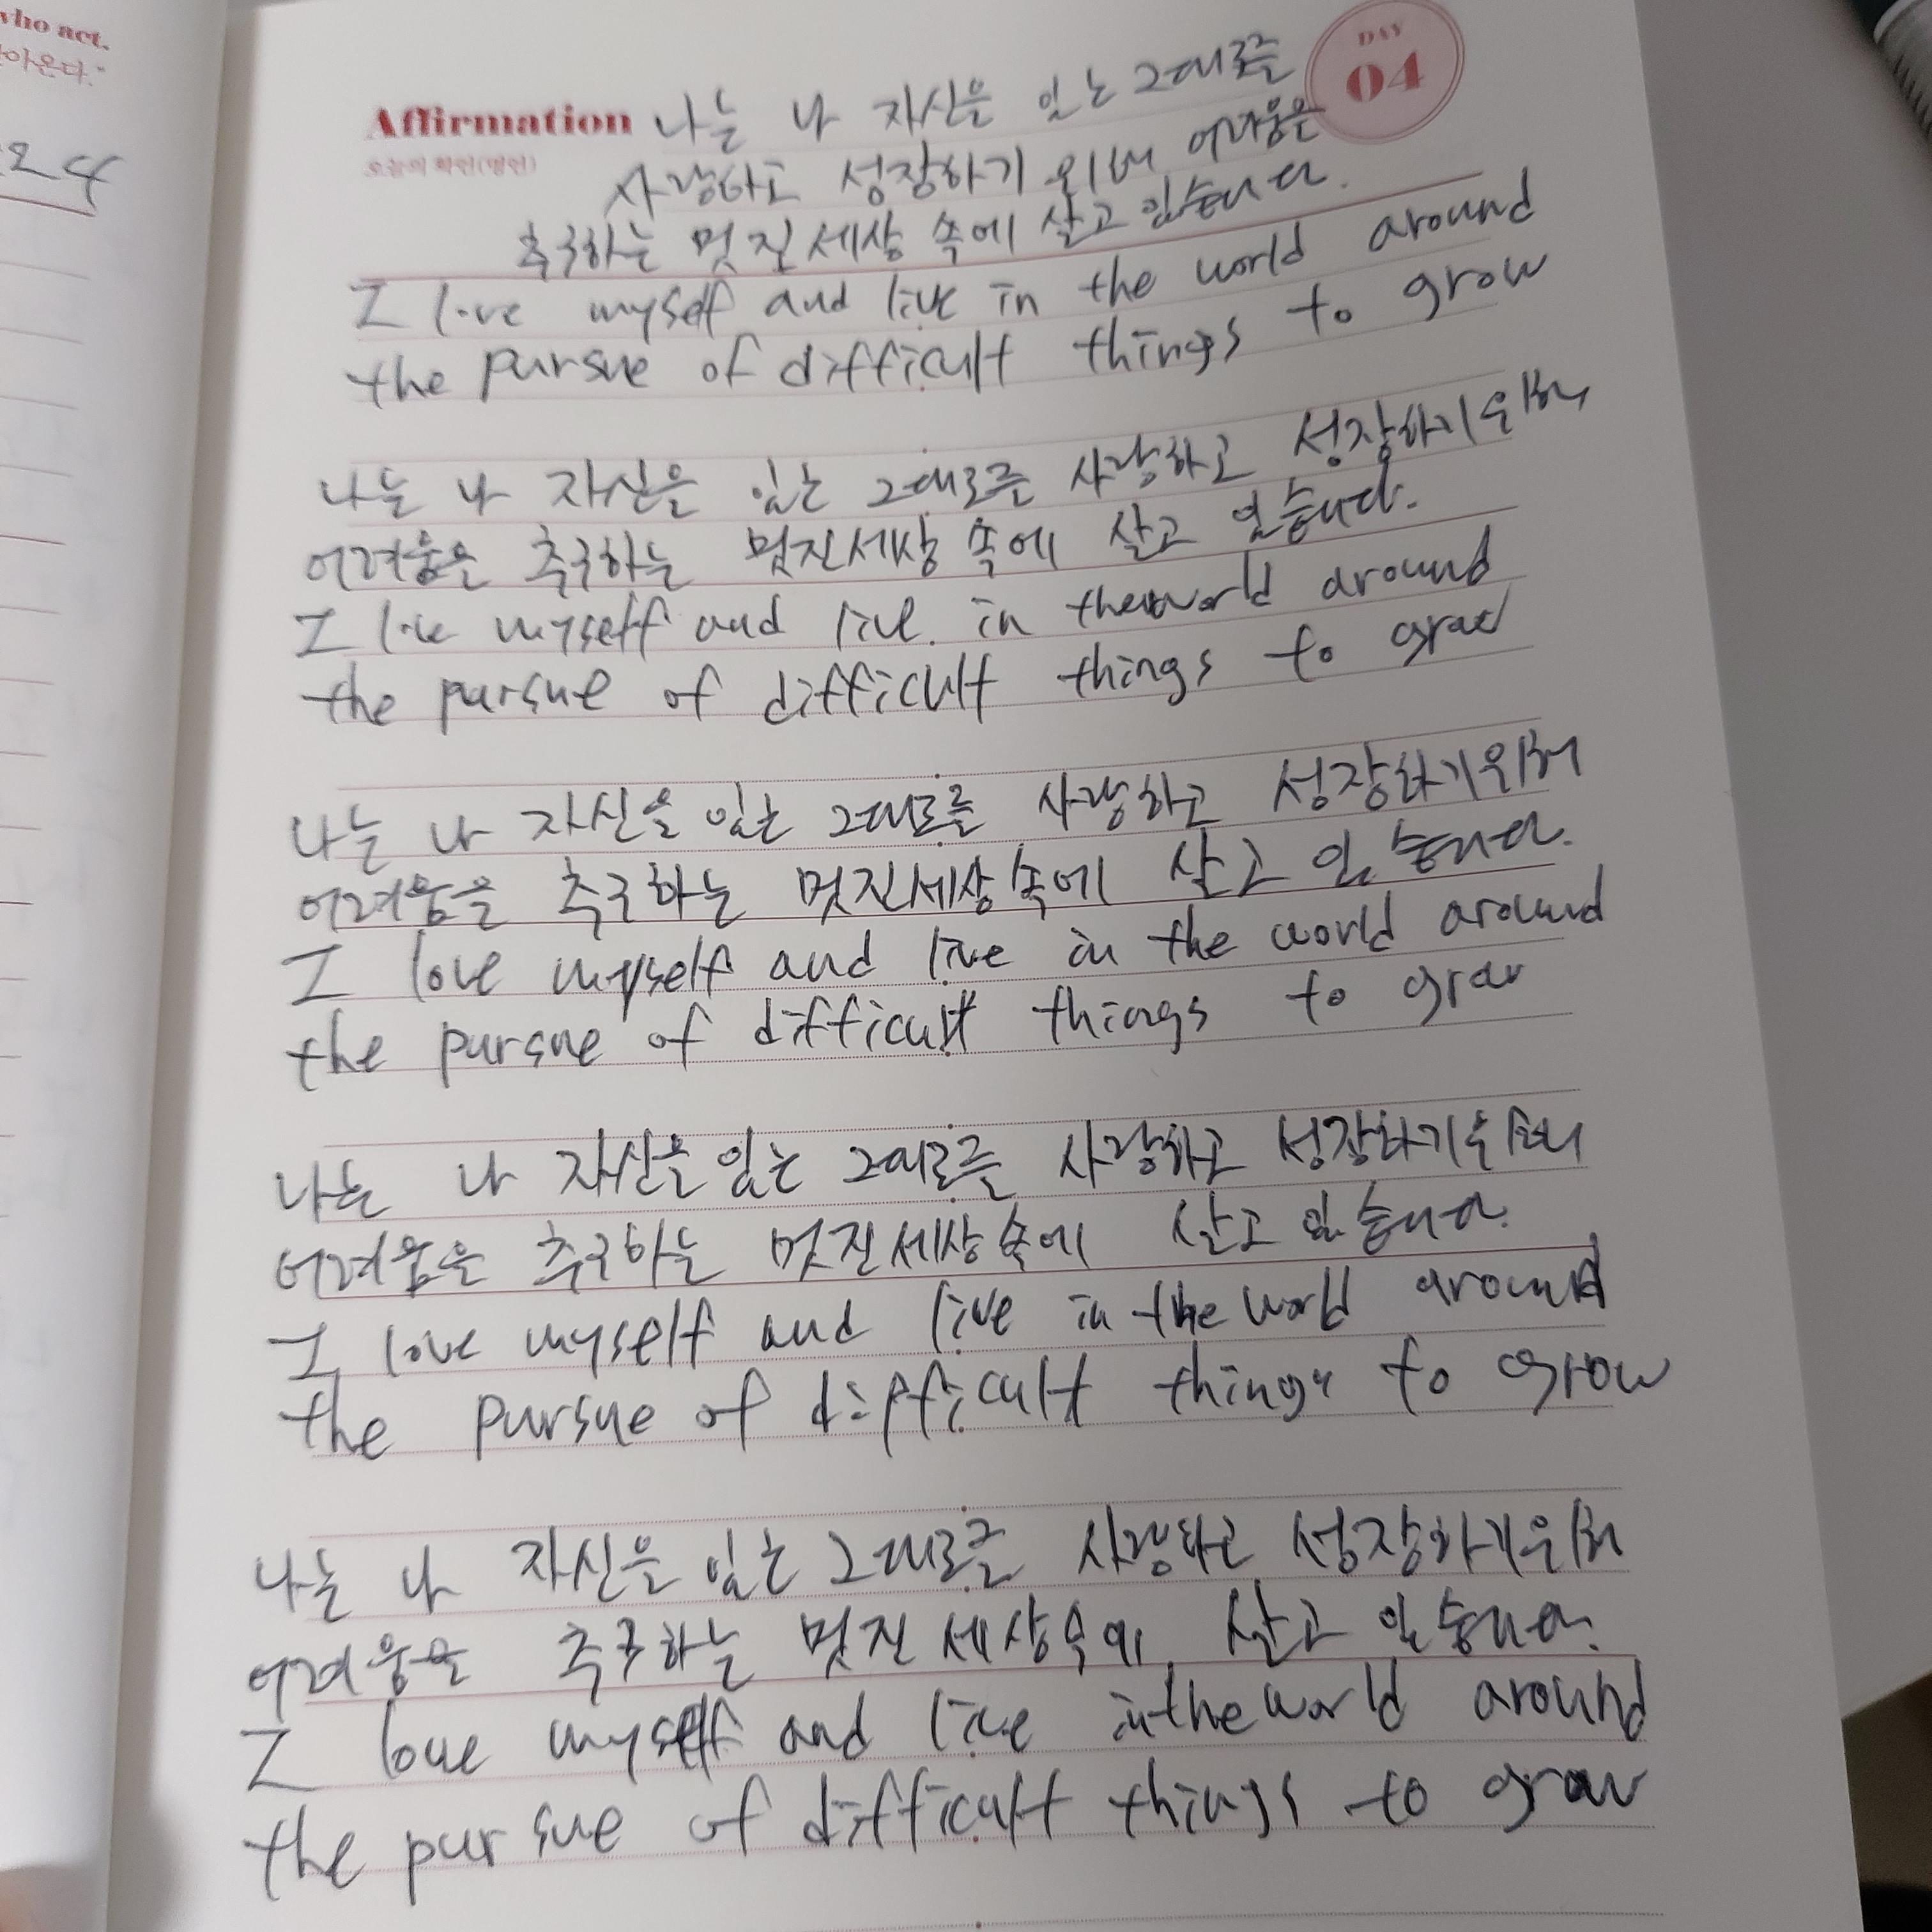 who act.
아온다."
24
DAY
04
Affirmation
오늘의 확언(명언)
나는 나 자신을 있는 그대로를
사랑하고 성장하기 위해 어려움은
추구하는 멋진 세상 속에 살고 있습니다.
I love myself and live in the world around
the pursue of difficult things to grow
나는 나 자신을 있는 그대로를 사랑하고 성장하기 위해
어려움은 추구하는 멋진 세상 속에 살고 있습니다.
I love myself and live. in the world around
the pursue of difficult things to grow
나는 나 자신을 있는 그대로를 사랑하고 성장하기 위해
어려움을 추구하는 멋진 세상 속에 살고 있습니다.
I love myself and live in the world around
the pursue of difficult things to grow
나는 나 자신을 있는 그대로를 사랑하고 성장하기 위해
어려움을 추구하는 멋진 세상 속에 살고 있습니다.
I love myself and live in the world around
the pursue of difficult things to grow
나는 나 자신을 있는 그대로를 사랑하고 성장하기 위해
어려움을 추구하는 멋진 세상 속에 살고 있습니다.
I love myself and live in the world around
the pursue of difficult things to grow